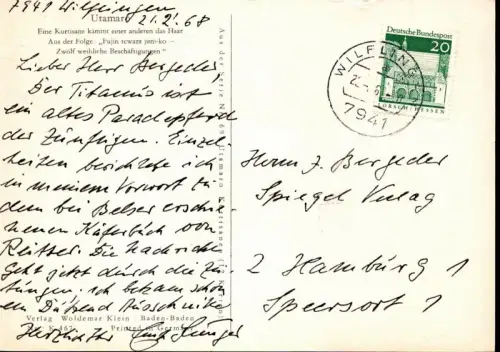 7941 Wilflingen
21.2.68
Utamaro
Eine Kurtisane kämmt einer anderen das Haar
Aus der Folge: „Fujin tewaza juni-ko –
Zwölf weibliche Beschäftigungen“
Lieber Herr Bergeder,
Der Titanus ist
ein altes Paradepferd
der Zünftigen. Einzel-
heiten berichtete ich
in meinem Vorwort zu
dem bei Belser erschie-
nenen Käferbuch von
Reitter. Die Nachricht
geht jetzt durch die Zei-
tungen. ich bekam schon
ein Dutzend Ausschnitte
Herzlich Ihr Ernst Jünger
Verlag Woldemar Klein Baden-Baden
K 467 Printed in Germany
Deutsche Bundespost
20
LORSCH/HESSEN
WILFLINGEN
7941
Herrn J. Bergeder
Spiegel Verlag
2 Hamburg 1
Speersort 1